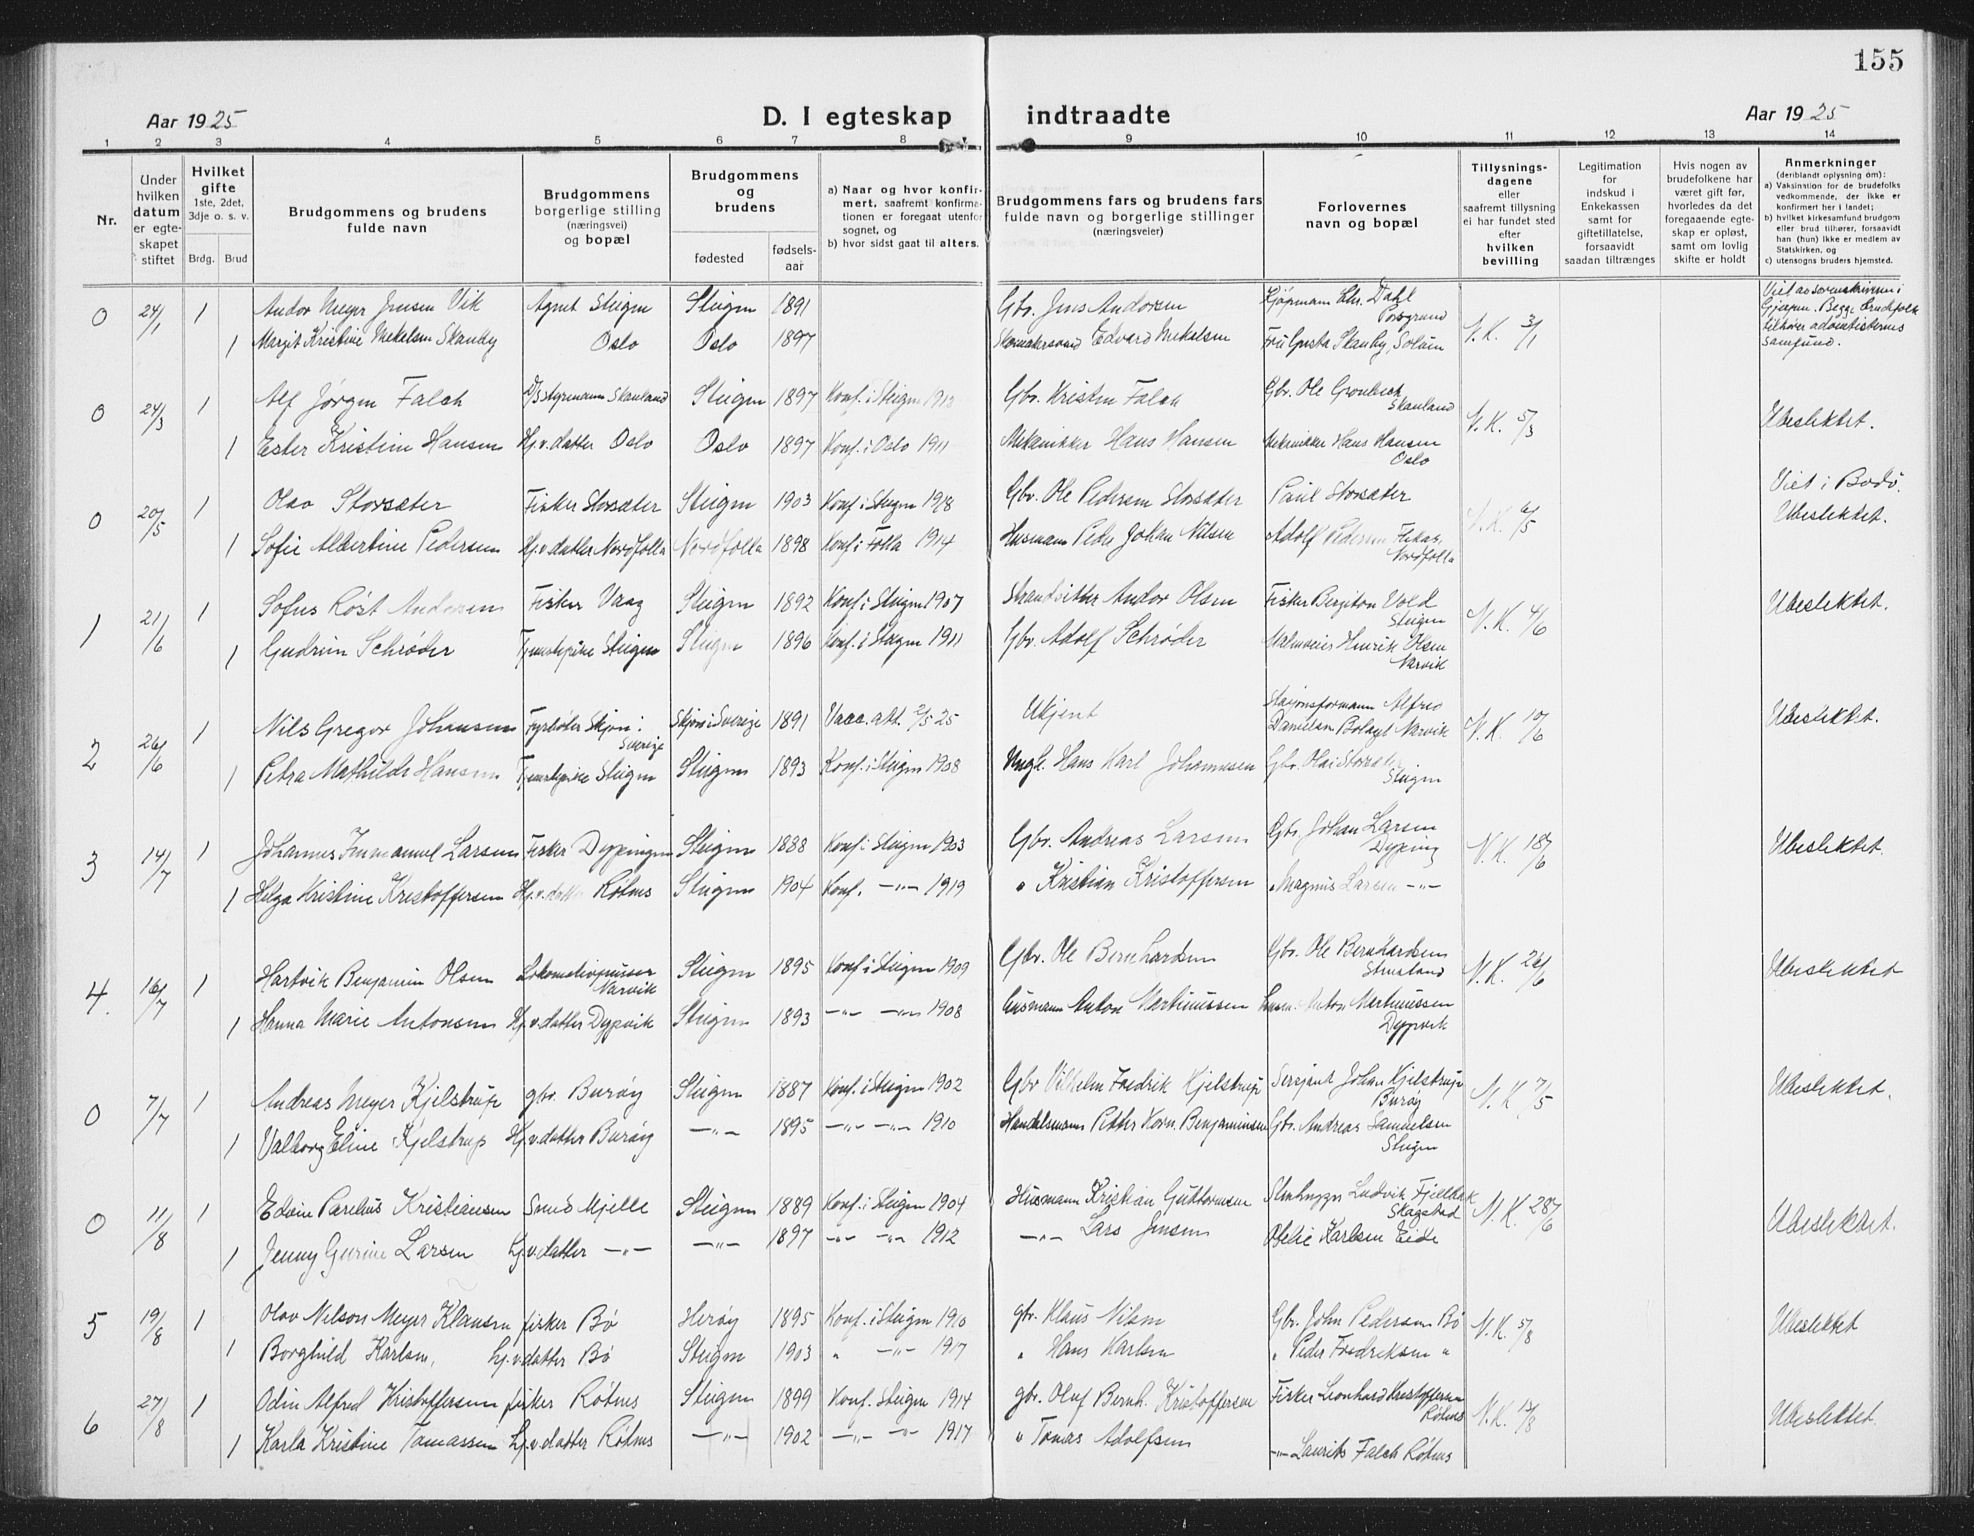 155
Aar 1925 D. I egteskap indtraadte Aar 1925
1 2 3 4 5 6 7 8 9 10 11 12 13 14
Nr.
Under hvilken datum er egteskapet stiftet
Hvilket gifte 1ste, 2det, 3dje o. s. v.
Brdg. Brud
Brudgommens og brudens fulde navn
Brudgommens borgerlige stilling (næringsvei) og bopæl
Brudgommens og brudens
fødested fødsels-aar
a) Naar og hvor konfirmert, saafremt konfirmationen er foregaat utenfor sognet, og
b) hvor sidst gaat til alters.
Brudgommens fars og brudens fars fulde navn og borgerlige stillinger (næringsveier)
Forlovernes navn og bopæl
Tillysningsdagene eller saafremt tillysning ei har fundet sted efter hvilken bevilling
Legitimation for indskud i Enkekassen samt for giftetillatelse, forsaavidt saadan tiltrænges
Hvis nogen av brudefolkene har været gift før, hvorledes da det foregaaende egteskap er opløst, samt om lovlig skifte er holdt
Anmerkninger (deriblandt oplysning om):
a) Vaksination for de brudefolks vedkommende, der ikke er konfirmert her i landet;
b) hvilket kirkesamfund brudgom eller brud tilhører, forsaavidt han (hun) ikke er medlem av Statskirken, og
c) utensogns bruders hjemsted.
0 24/1 1 Andor Meyer Jensen Vik Agent Steigen Steigen 1891 Gbr. Jens Andersen Kjøpmann Chr. Dahl Porsgrund N.K. 3/1
1 Margit Kristine Mekelsen Skauby Oslo Oslo 1897 Edvard Mekelsen Fru Gusta Skauby, Solum
0 24/3 1 Alf Jørgen Falch D/S styrmann Skauland Steigen 1897 Konf. i Steigen 1912 Gbr. Kristen Falch Gbr. Ole Gronbech Skauland N.K. 5/3 Ubeslektet.
1 Ester Kristine Hansen Hj.v.datter Oslo Oslo 1897 Konf. i Oslo 1911 Mekanikker Hans Hansen Mekanikker Hans Hansen Oslo
0 20/5 1 Olav Storsæter Fisker Storsæter Steigen 1903 Konf. i Steigen 1918 Gbr. Ole Pedersen Storsæter Paul Storsæter N.K. 6/5 Viet i Bodö. Ubeslektet.
1 Sofie Albertine Pedersen Hj.v.datter Nordfolla Nordfolla 1898 Konf. i Folla 1914 Husmann Peder Johan Nilsen Adolf Pedersen Nordfolla
1 21/6 1 Sofus Röst Andersen Fisker Vaag Steigen 1892 Konf. i Steigen 1907 Strandsitter Andor Olsen Fisker Bergiton Vold Steigen N.K. 4/6 Ubeslektet.
1 Gudrun Schrøder Tjenestepike Steigen Steigen 1896 Konf. i Steigen 1911 Gbr. Adolf Schrøder Henrik Olsen Narvik
2 26/6 1 Nils Gregor Johansen Fyrbøter Sverige 1891 Vacc. att. 2/5 25 Ukjent Stasjonsformann Alfred Danielsen Narvik N.K. 10/6 Ubeslektet.
1 Petra Mathilde Hansen Tjenestepike Steigen Steigen 1893 Konf. i Steigen 1908 Ungk. Hans Karl Johannesen Gbr. Olai Storsæter Steigen
3 14/7 1 Johannes Immanuel Larsen Fisker Dypingen Steigen 1888 Konf. i Steigen 1903 Gbr. Andreas Larsen Gbr. Johan Larsen Dyping N.K. 18/6 Ubeslektet.
1 Helga Kristine Kristoffersen Hj.v.datter Røtnes Steigen 1904 Konf. -"- 1919 " Kristian Kristoffersen " Magnus Larsen -"-
4. 16/7 1 Hartvik Benjamin Olsen Lokomotivpusser Narvik Steigen 1895 Konf. i Steigen 1909 Gbr. Ole Bernhardsen Gbr. Ole Bernhardsen N.K. 26/6 Ubeslektet
1 Hanna Marie Antonsen Hj.v.datter Dypvik Steigen 1893 -"- -"- 1908 Husmann Anton Martinussen Husm. Anton Martinussen Dypvik
0 7/7 1 Andreas Meyer Kjelstrup gbr. Burøy Steigen 1887 Konf. i Steigen 1902 Gbr Vilhelm Fredrik Kjelstrup Sersjant Johan Kjelstrup Burøy N.K 7/5 Ubeslektet.
1 Valborg Eline Kjelstrup Hj.v.datter Burøy -"- 1895 -"- -"- 1910 Handelsmann Petter Korn. Benjaminsen Gbr. Andreas Samuelsen Steigen
0 11/8 1 Edvin Parelius Kristiansen Smed Mjelle Steigen 1889 Konf. i Steigen 1904 Husmann Kristian Guttormsen Ludvik Fjellbak Skagstad N.K. 28/6 Ubeslektet.
1 Jenny Gurine Larsen Hj.v.datter -"- -"- 1897 -"- -"- 1912 -"- Lars Jensen Ofelie Karlsen Eide
5 19/8 1 Olav Nilson Meyer Klausen fisker Bø Herøy 1895 Konf. i Steigen 1910 gbr. Klaus Nilsen Gbr. John Pedersen Bø N.K. 5/8 Ubeslektet
1 Borghild Karlsen, hj.v.datter Bø Steigen 1903 " -"- 1917 " Hans Karlsen " Peder Fredriksen "
6 27/8 1 Odin Alfred Kristoffersen fisker Røtnes Steigen 1899 Konf. Steigen 1914 gbr. Oluf Bernh. Kristoffersen Fisker Leonhard Kristoffersen Røtnes N.K. 13/8 Ubeslektet.
1 Karla Kristine Tomassen hj.v.datter Røtnes -"- 1902 -"- -"- 1917 " Tomas Adolfsen -"- Laurits Falch Røtnes